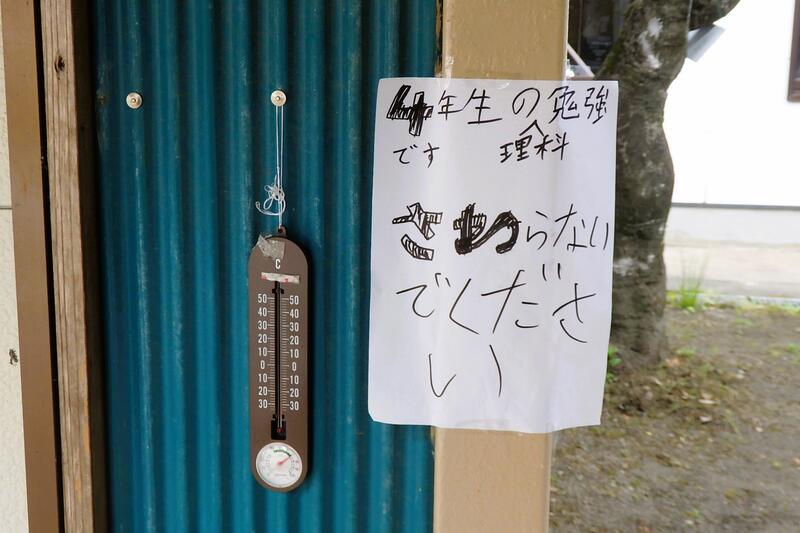 4年生の勉強
です 理科
さわらない
でくださ
い
C
50 50
40 40
30 30
20 20
10 10
0 0
10 10
20 20
30 30